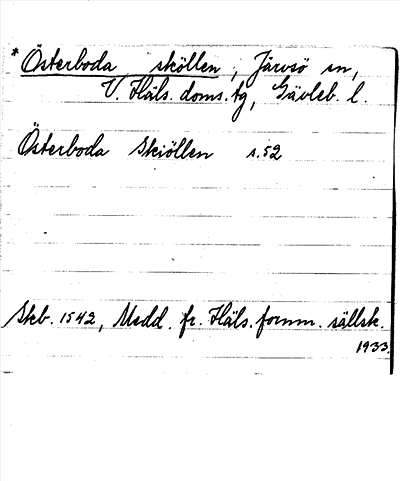 * Österboda sköllen, Järvsö sn,
V. Häls. doms. tg, Gävleb. l.
Österboda Skiöllen s. 52
Skb. 1542, Medd. fr. Häls. fornm. sällsk.
1933.